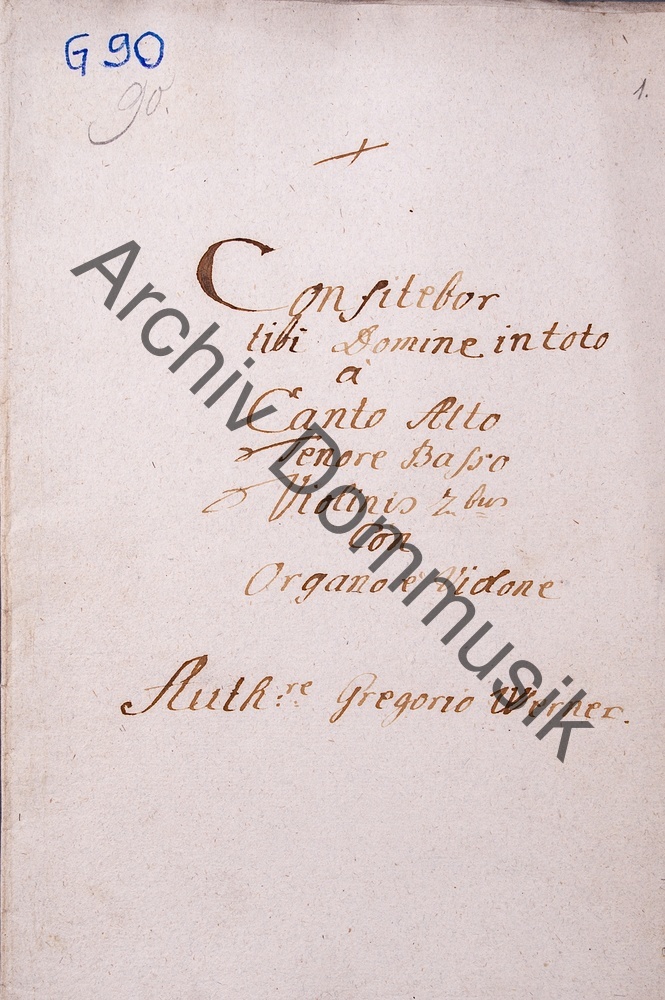 G 90
90.
1.
Confitebor
tibi Domine in toto
à
Canto Alto
Tenore Basso
Violinis 2bus
Con
Organo è Violone
Auth:re Gregorio Werner.
Archiv Dommusik